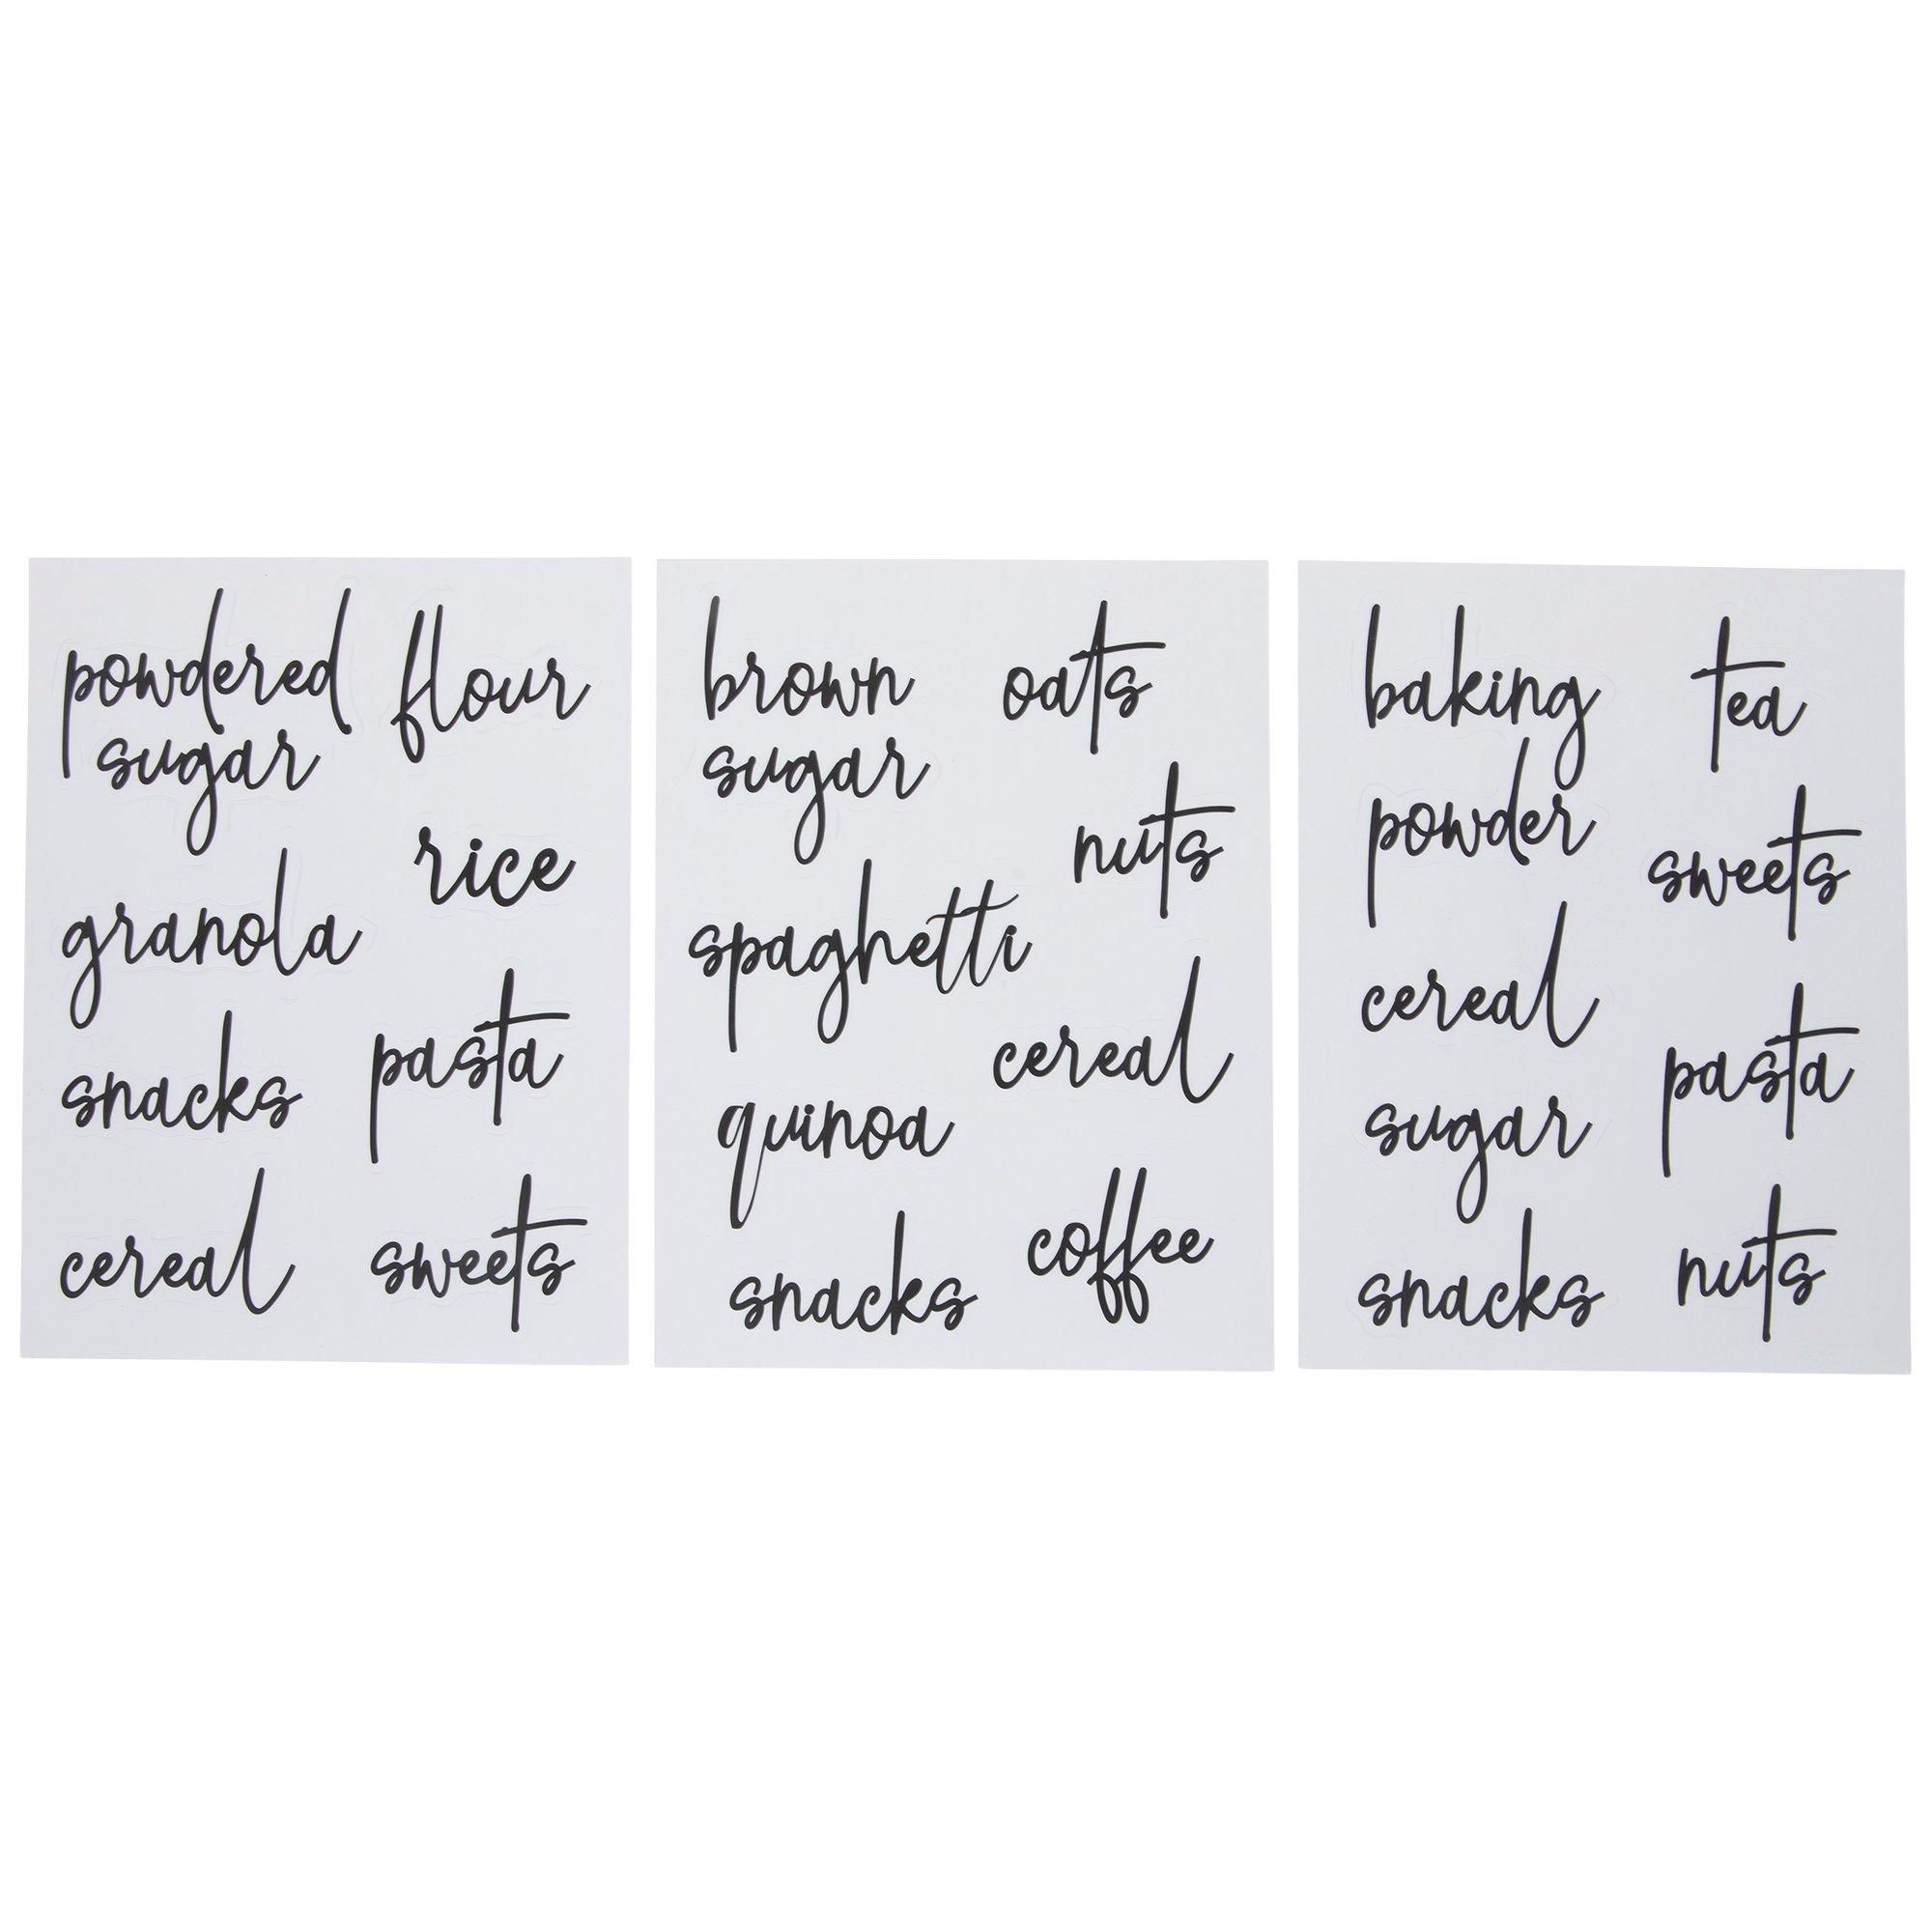 powdered
sugar
granola
snacks
cereal
flour
rice
pasta
sweets
brown
sugar
spaghetti
quinoa
snacks
oats
nuts
cereal
coffee
baking
powder
cereal
sugar
snacks
tea
sweets
pasta
nuts